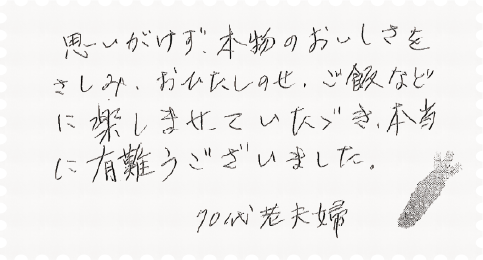 思いがけず、本物のおいしさを
さしみ、おひたしのせ、ご飯など
に楽しませていただき、本当
に有難うございました。
70代老夫婦